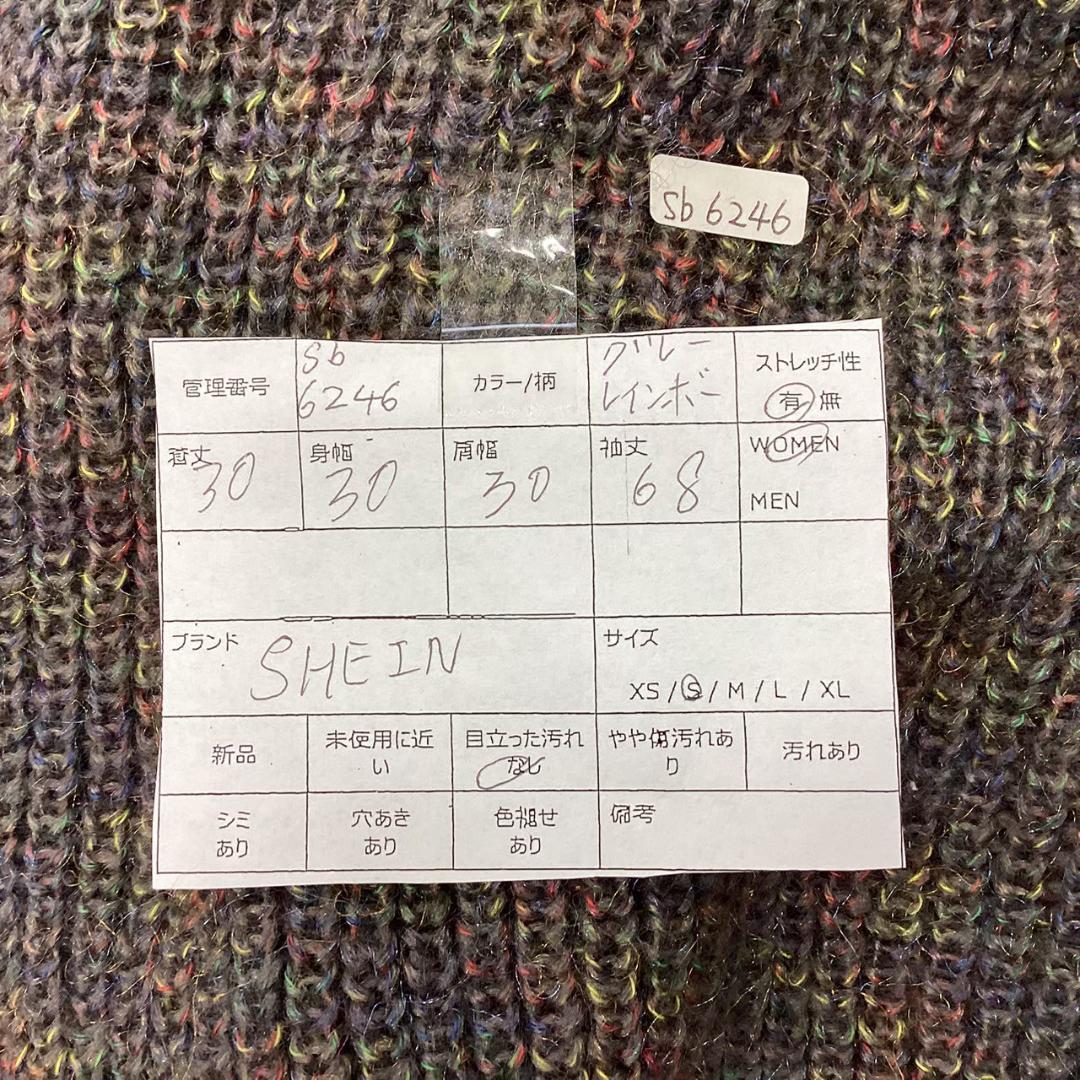 sb 6246
管理番号
sb
6246
カラー/柄
グレー
レインボー
ストレッチ性
有 無
着丈
30
身幅
30
肩幅
30
袖丈
68
WOMEN
MEN
ブランド
SHEIN
サイズ
XS / S / M / L / XL
新品
未使用に近
い
目立った汚れ
なし
やや傷汚れあ
り
汚れあり
シミ
あり
穴あき
あり
色褪せ
あり
備考